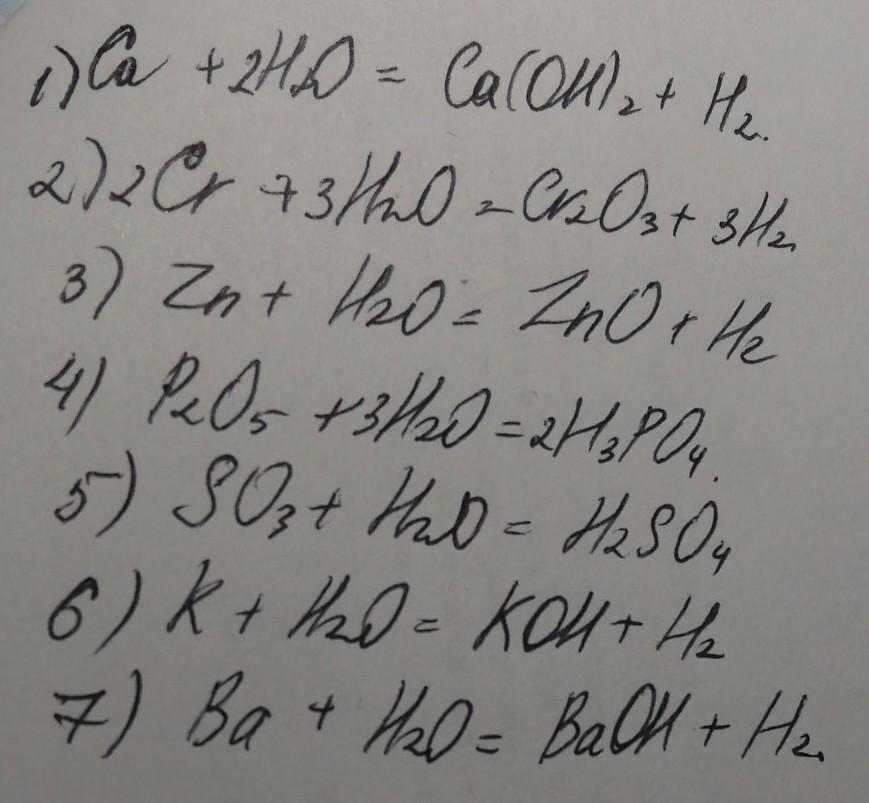 1) Ca + 2H₂O = Ca(OH)₂ + H₂.
2) 2Cr + 3H₂O = Cr₂O₃ + 3H₂.
3) Zn + H₂O = ZnO + H₂
4) P₂O₅ + 3H₂O = 2H₃PO₄.
5) SO₃ + H₂O = H₂SO₄
6) K + H₂O = KOH + H₂
7) Ba + H₂O = BaOH + H₂.